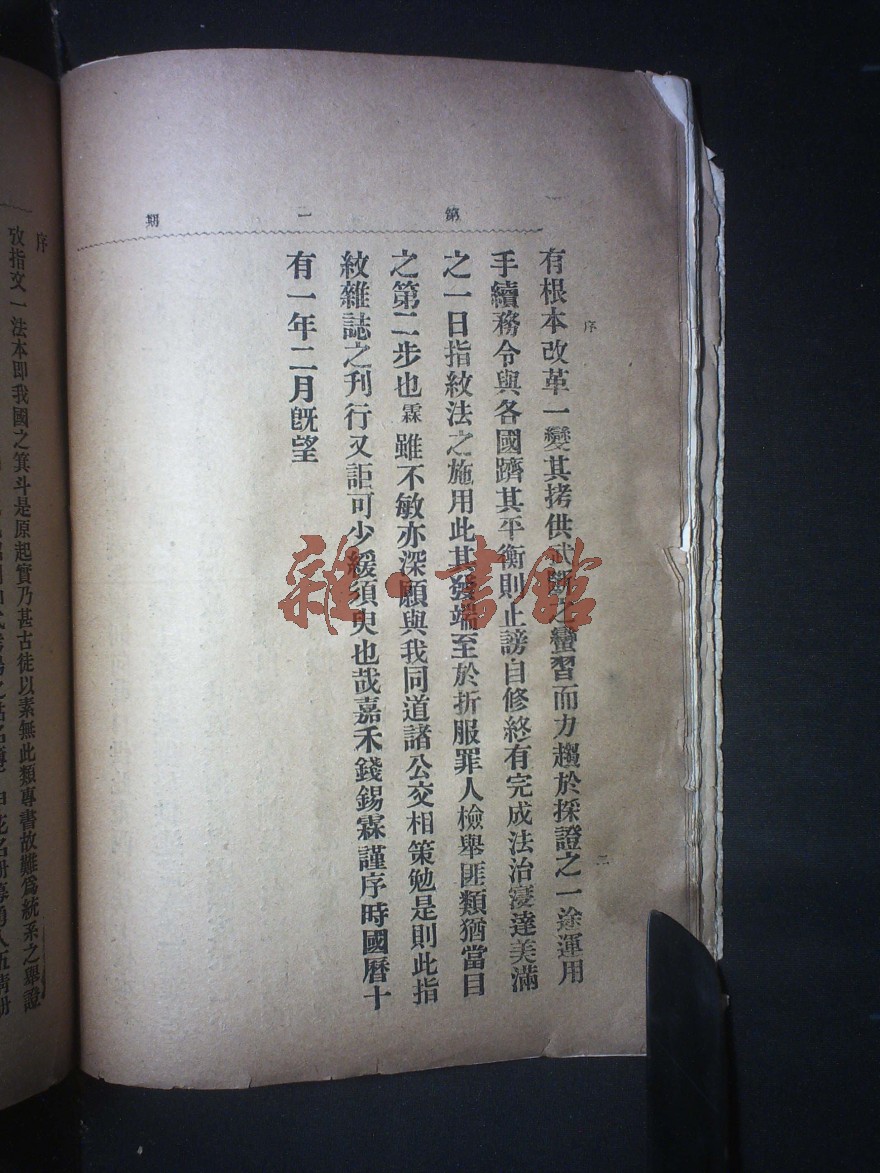 第一期
序
二
有根本改革一變其拷供武斷之蠻習而力趨於採證之一途運用
手續務令與各國躋其平衡則止謗自修終有完成法治寖達美滿
之一日指紋法之施用此其發端至於折服罪人檢舉匪類猶當目
之第二步也霖雖不敏亦深願與我同道諸公交相策勉是則此指
紋雜誌之刊行又詎可少緩須臾也哉嘉禾錢錫霖謹序時國曆十
有一年二月旣望
雜·書館
序
攷指文一法本即我國之箕斗是原起實乃甚古徒以素無此類專書故難爲統系之舉證